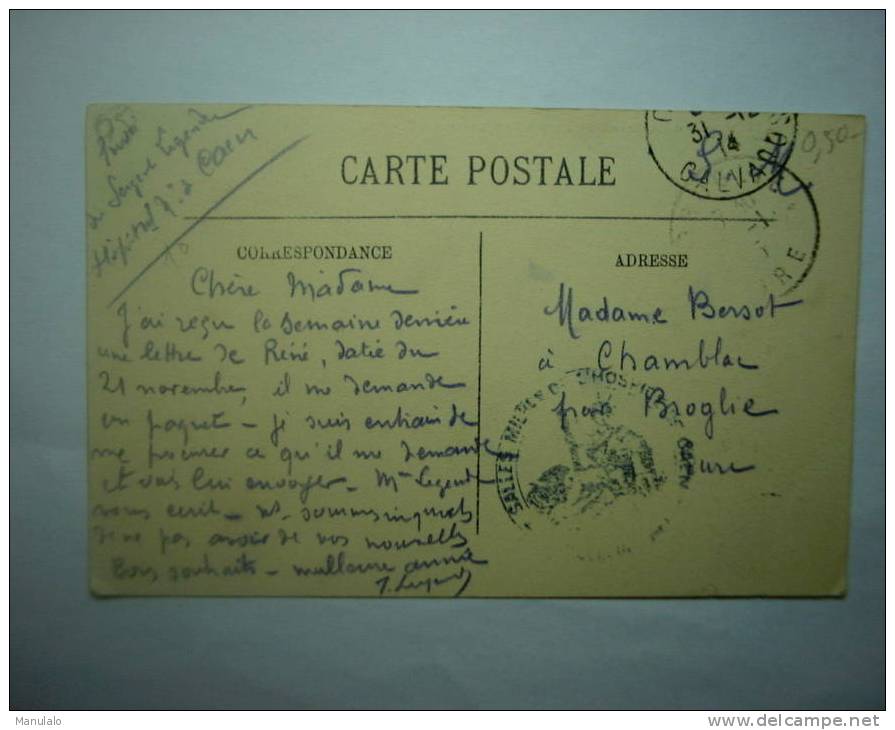 de Sergent Legendre
Hôpital à Caen
CARTE POSTALE
31
14
CALVADOS
0,50
CORRESPONDANCE
Chère Madame
J'ai reçu la semaine dernière
une lettre de René, datée du
21 novembre, il me demande
un paquet - je suis en train de
me procurer ce qu'il me demande
et vais lui envoyer - Mme Legendre
vous écrit - ns sommes inquiets
de ne pas avoir de vos nouvelles
Bons souhaits - meilleure année
J. Legendre
ADRESSE
Madame Bersot
à Chamblac
par Broglie
Eure
SALLES MILITAIRES DE L'HOSPICE DE CAEN
Manulalo
http://www.delcampe.net